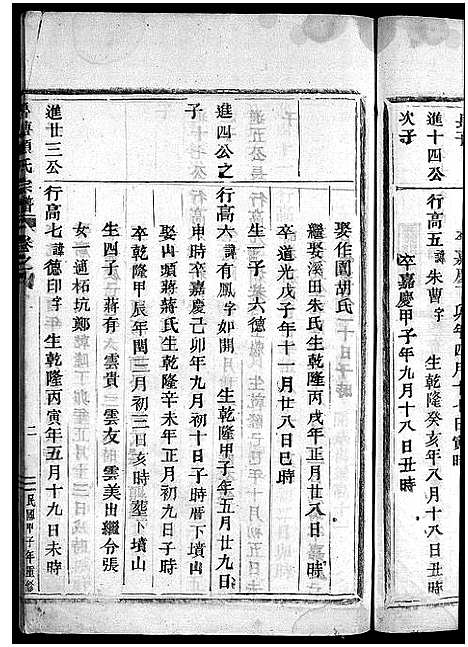 長子
進十四公 行高五 諱朱曹 字 生乾隆癸亥年八月十八日丑時
次子
卒嘉慶甲子年九月十八日丑時
娶作圍胡氏
繼娶溪田朱氏生乾隆丙戌年正月廿八日 時
卒道光戊子年十一月廿八日巳時
生一子 六德
進四公之 行高六 諱有鳳 字如開 生乾隆甲子年五月廿九日
子
申時卒嘉慶己卯年九月初十日子時厝下墳山
娶山頭蔣蔣氏生乾隆辛未年正月初九日子時
卒乾隆甲辰年閏三月初三日亥時 塟下墳山
生四子 蔣有 雲貴 雲友 雲美出繼分張
女一適柘坑鄭
進廿三公 行高七 諱德印 字 生乾隆丙寅年五月十九日未時
項氏宗譜 卷之
二
民國甲子年重修